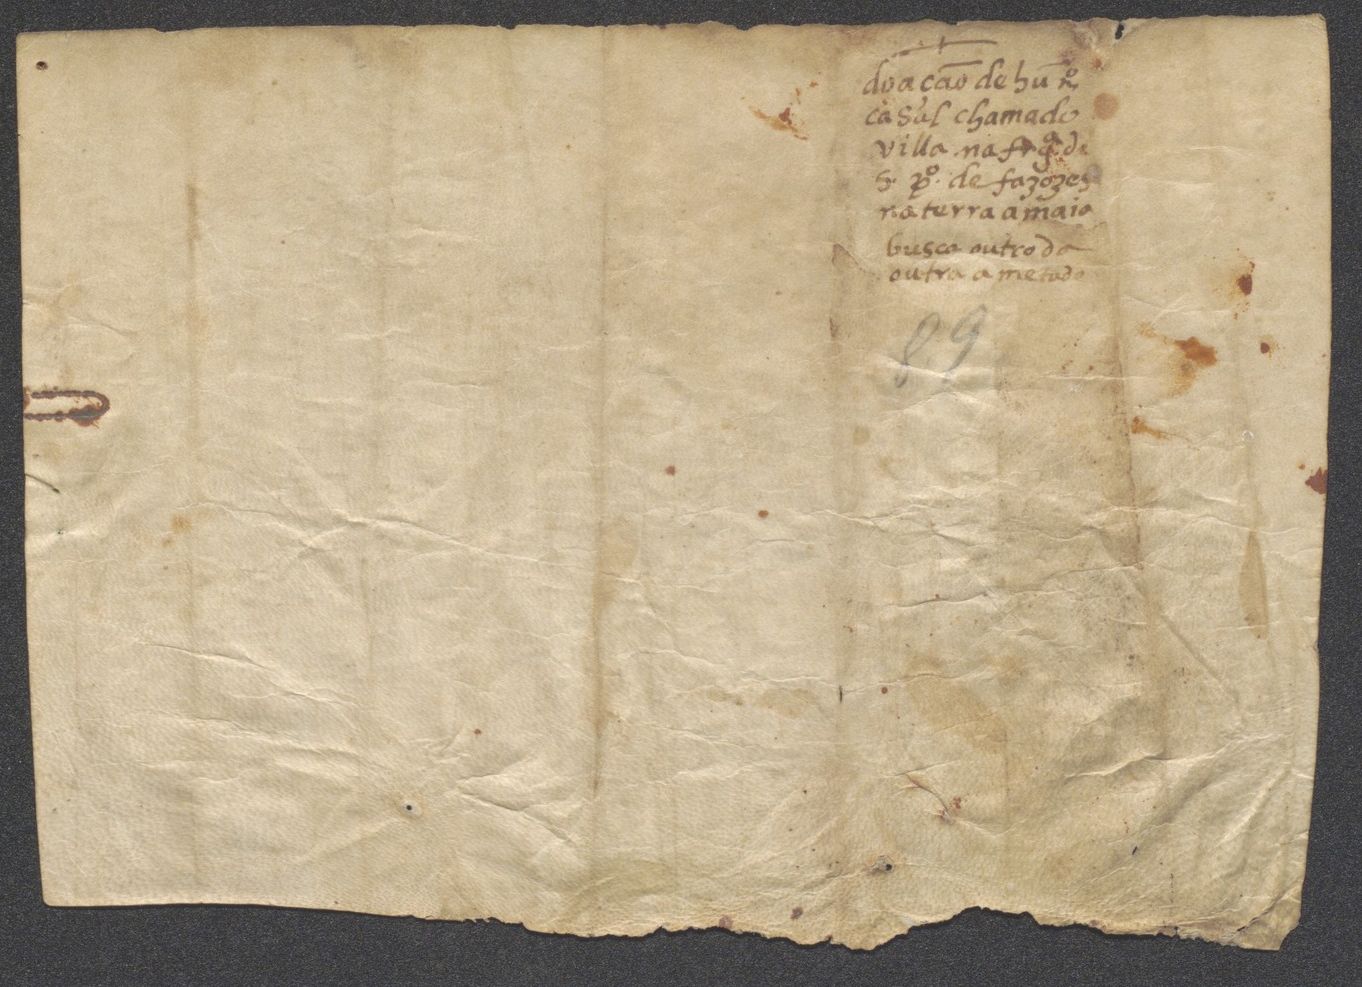 doacão de hũ
casal chamado
villa na frg.ª de
S. P.º de fazozes
na terra a maia
busca outro da
outra ametade
89